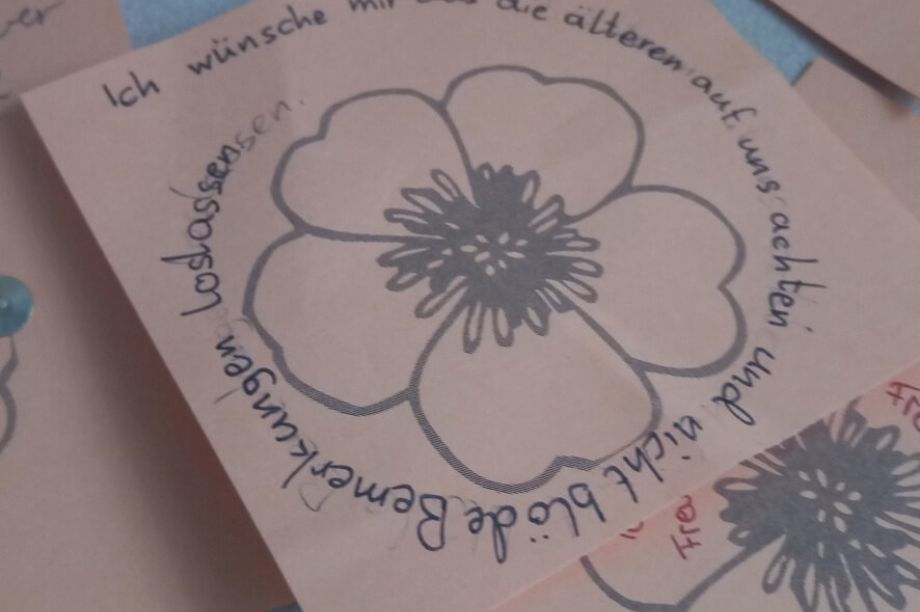 Ich wünsche mir das die älteren auf uns achten und nicht blöde Bemerkungen loslassensen.